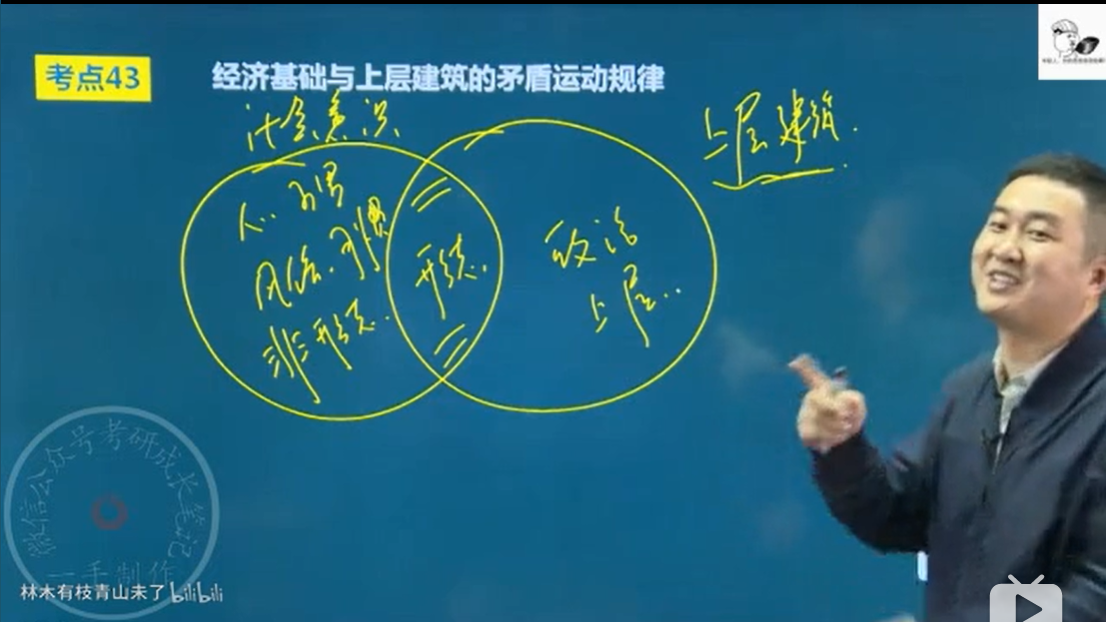 考点43
经济基础与上层建筑的矛盾运动规律
社会意识
上层建筑.
风俗.习惯
形态.
政治
上层..
非形态.
微信公众号考研成长笔记
一手制作
林木有枝青山未了 bilibili